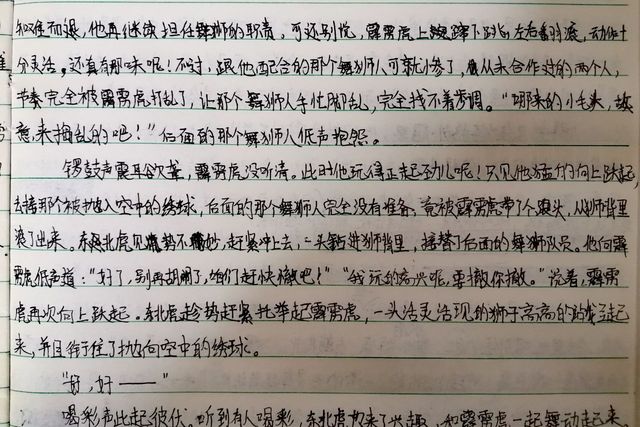 知难而退,他再继续担任舞狮的职责,可还别忙,霹雳虎上蹿下跳的左右奋渡,动作十
分灵活,还真有那味呢!不过,跟他配合的那个舞狮人可就惨了,从未合作过的两个人,
节奏完全被霹雳虎打乱了,让那个舞狮人手忙脚乱,完全找不着步调。“哪来的小毛头,故
意来捣乱的吧!”后面的那个舞狮人低声抱怨。
锣鼓声震耳欲聋,霹雳虎没听清。此时他玩得正起劲儿呢!只见他猛的向上跃起
去接那个被抛入空中的绣球,后面的那个舞狮人完全没有准备,竟被霹雳虎带了个跟头,从狮背里
滚了出来。东北虎见势不妙,赶紧冲上去,一头钻进狮背里,接替了后面的舞狮队员。他向霹
雳虎低声道:“好了,别再胡闹了,咱们赶快撤吧!”“我玩的高兴呢,要撤你撤。”说着,霹雳
虎再次向上跃起。东北虎趁势赶紧托举起霹雳虎,一头活灵活现的狮子高高的站立起
来,并且衔住了抛向空中的绣球。
“好,好——”
喝彩声此起彼伏。听到有人喝彩,东北虎也来了兴趣,和霹雳虎一起舞动起来。